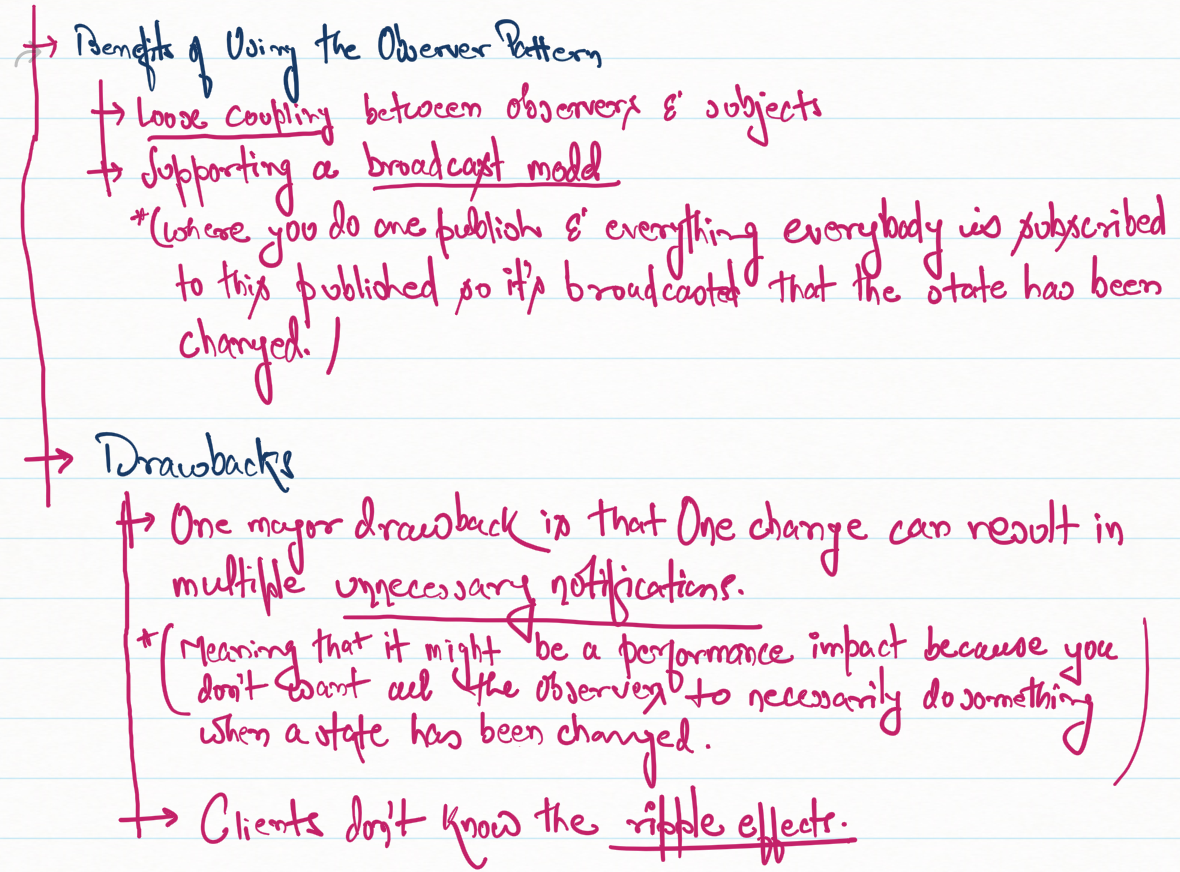 → Benefits of Using the Observer Pattern
→ Loose coupling between observers & subjects
→ Supporting a broadcast model
*(where you do one publish & everything everybody is subscribed
to this published so it's broadcasted that the state has been
changed.)
→ Drawbacks
→ One major drawback is that One change can result in
multiple unnecessary notifications.
*(Meaning that it might be a performance impact because you
don't want all the observers to necessarily do something
when a state has been changed.)
→ Clients don't know the ripple effects.